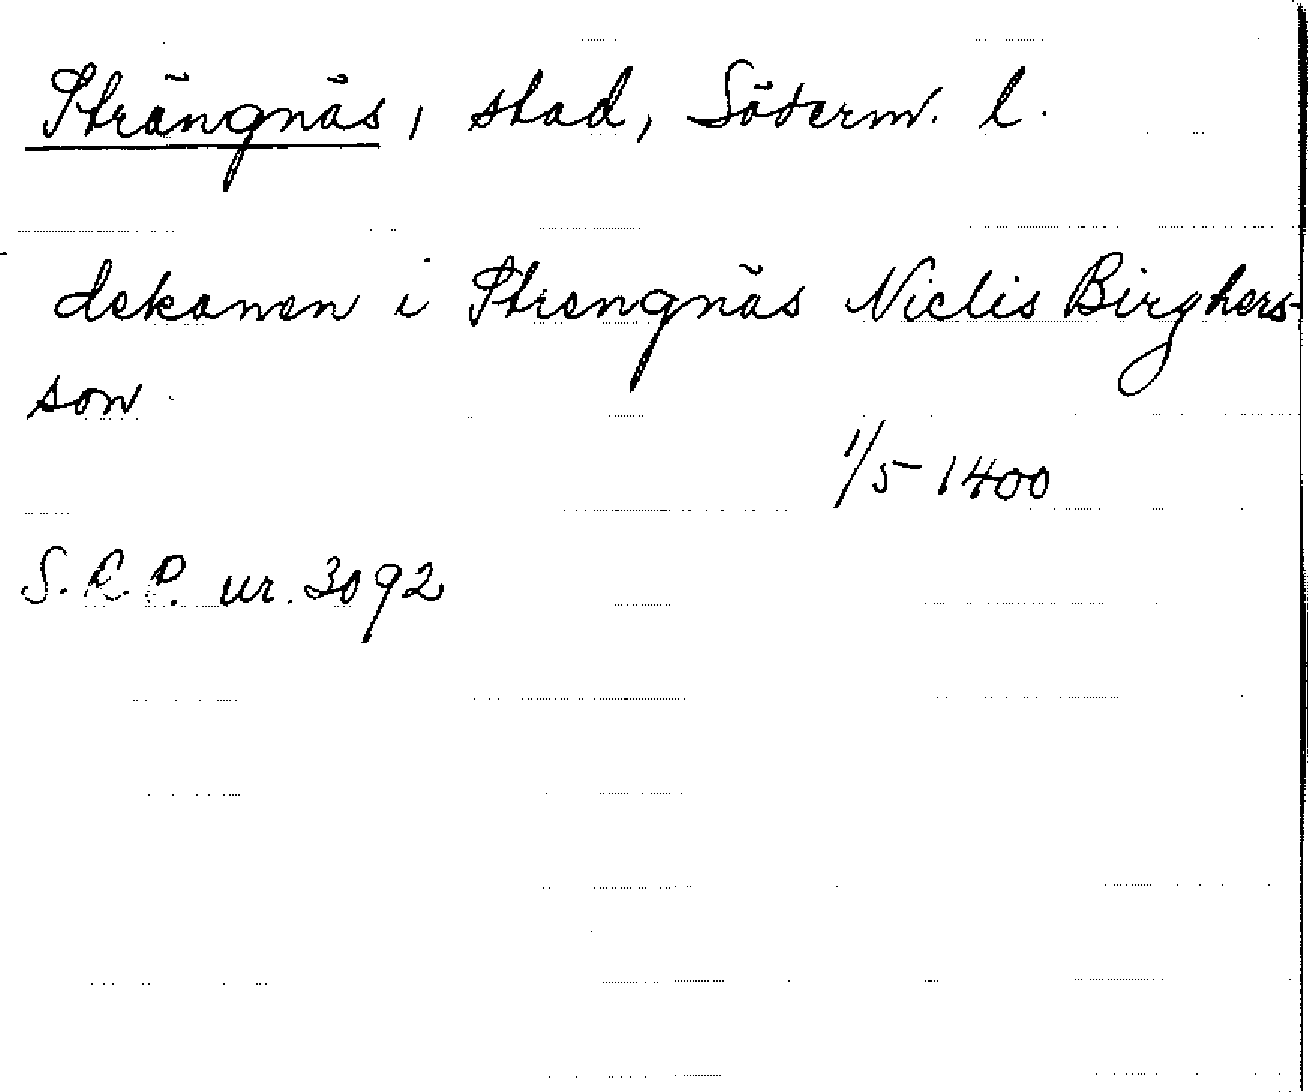 Strängnäs, stad, Söderm. l.
dekanen i Strengnäs Niclis Birghers-
son
1/5 1400
S.R.P. nr. 3092